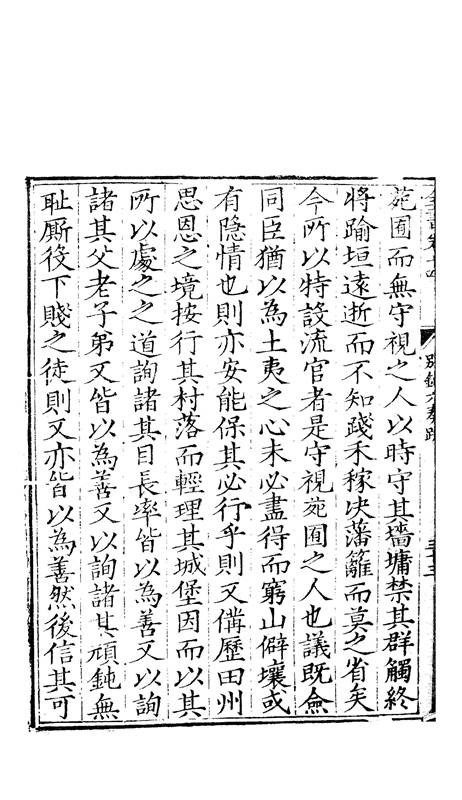 苑囿而無守視之人以時守其墻墉禁其群觸終
將踰垣遠逝而不知踐禾稼决藩籬而莫之省矣
今所以特設流官者是守視苑囿之人也議既僉
同臣猶以為土夷之心未必盡得而窮山僻壤或
有隐情也則亦安能保其必行乎則又備歷田州
思恩之境按行其村落而輕理其城堡因而以其
所以處之之道詢諸其目長率皆以為善又以詢
諸其父老子弟又皆以為善又以詢諸其頑鈍無
耻厮役下賤之徒則又亦皆以為善然後信其可